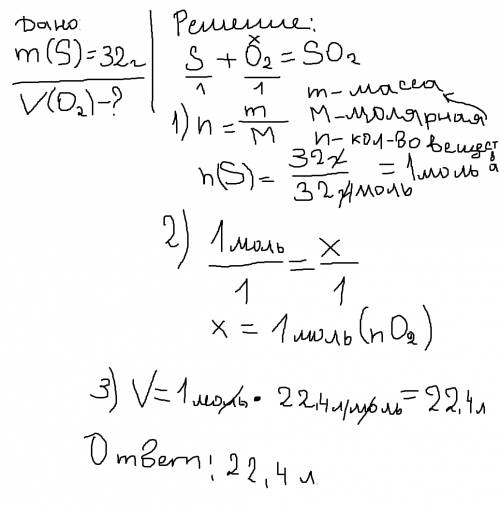 Дано
m(S)=32г
V(O₂)-?
Решение:
x
S + O₂ = SO₂
1 1
m-масса
M-молярная
n-кол-во вещества
1) n = m/M
n(S) = 32г/32г/моль = 1моль
2) 1моль/1 = x/1
x = 1моль(nO₂)
3) V=1моль· 22,4л/моль=22,4л
Ответ: 22,4 л